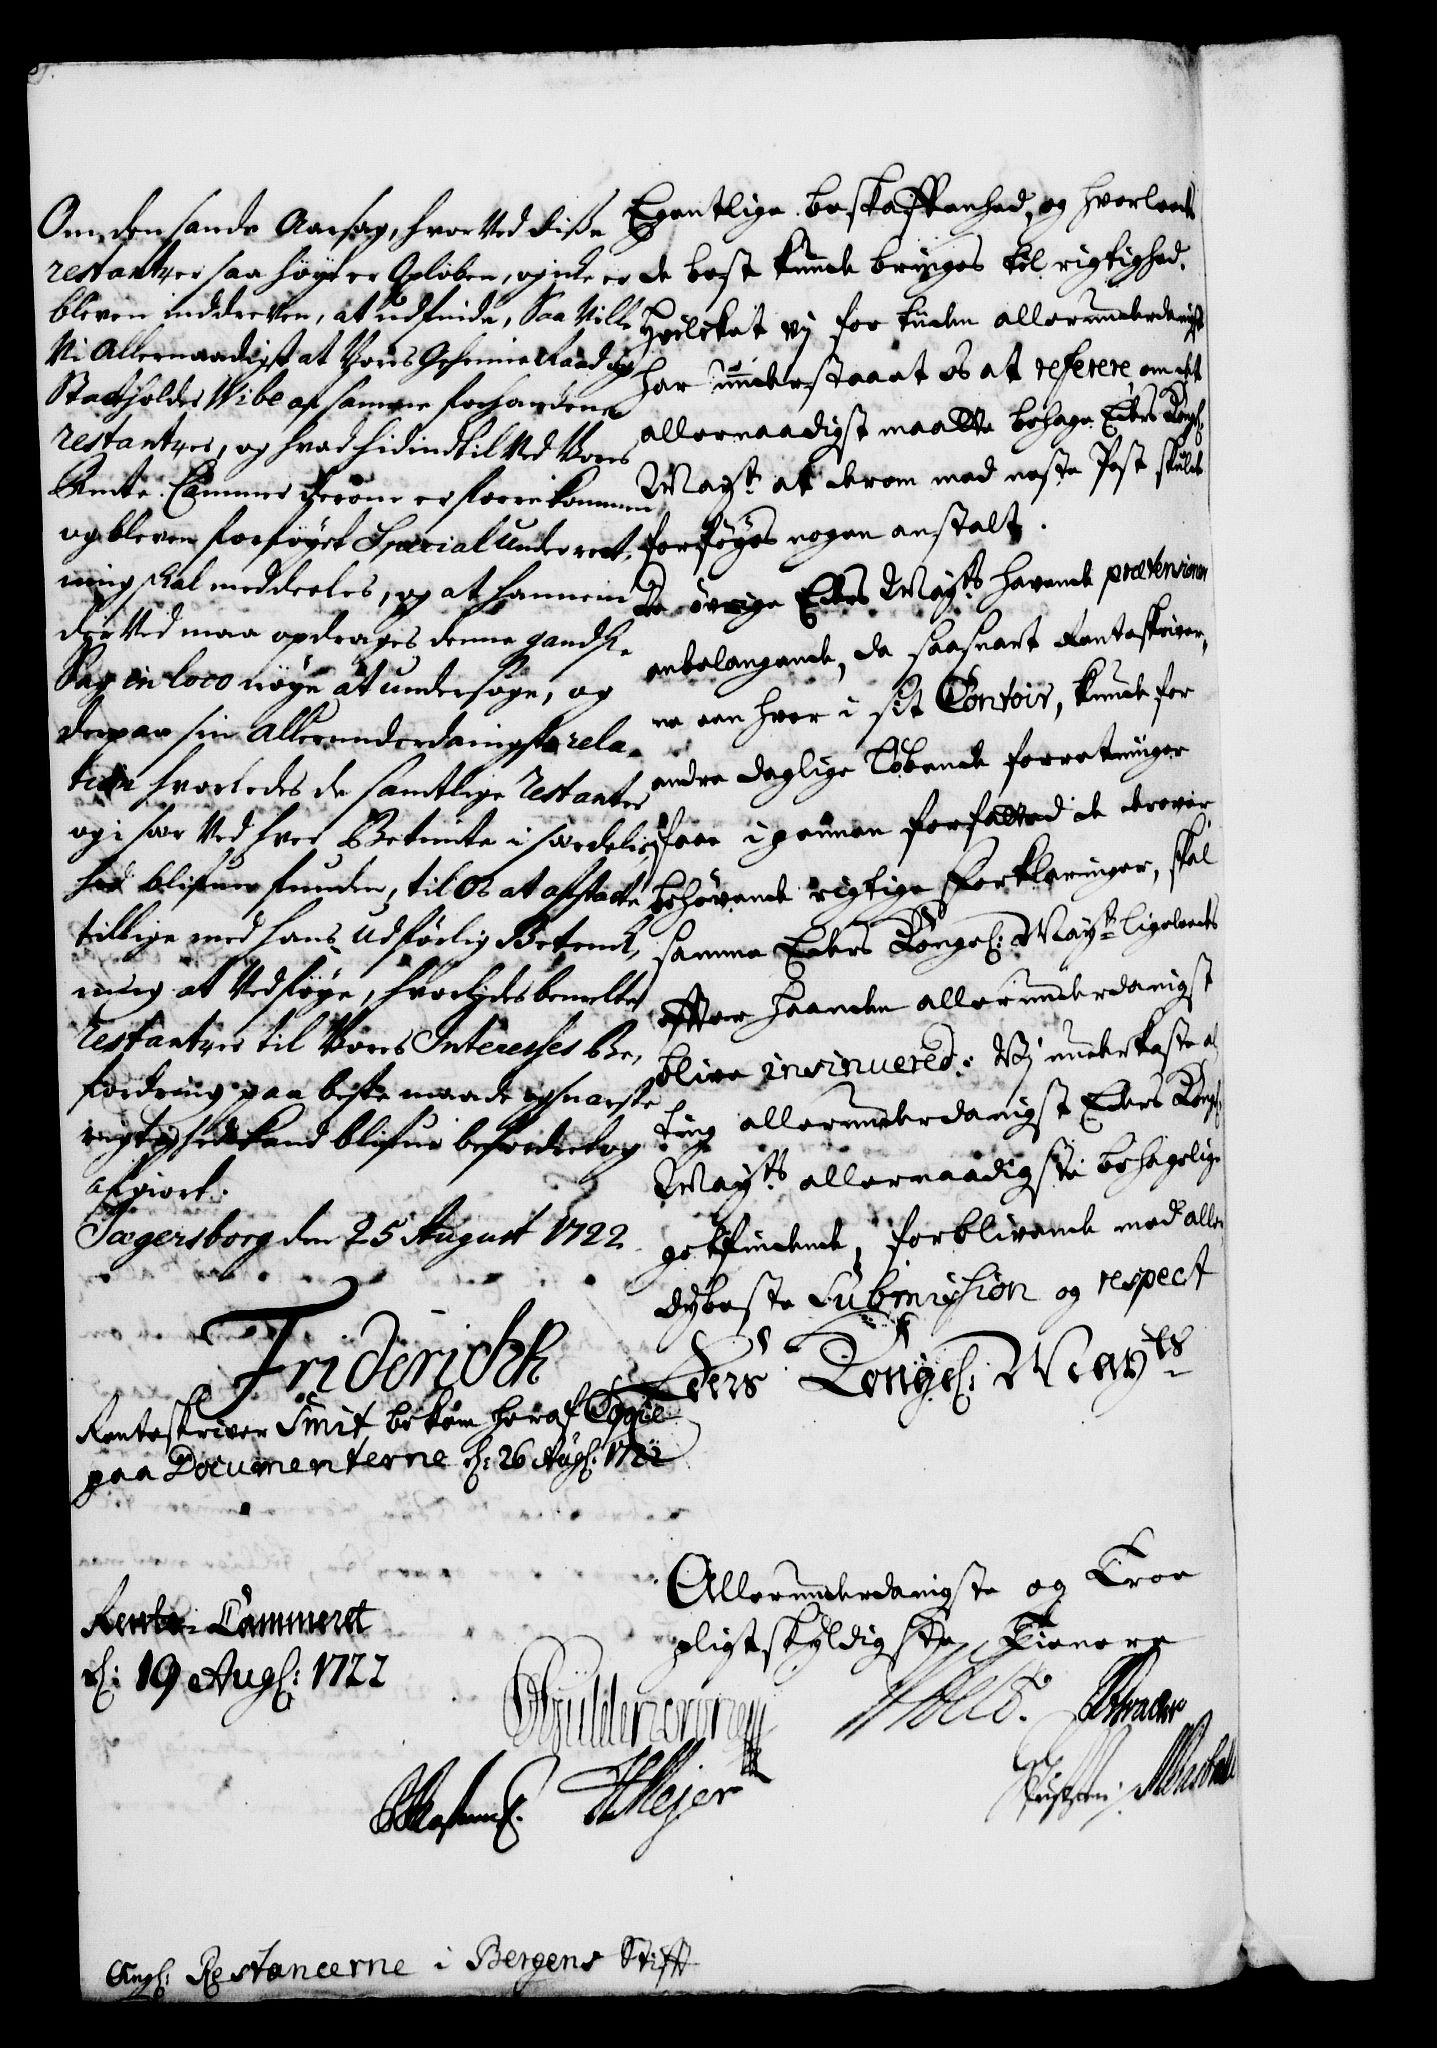 Om den sande Aarsag, hvor ved disse
restantzer saa høyt er Opløben, og icke er
bleven inddreven, at udfinde, Saa Ville
Vi Allernaadigst at Vores Geheime Raad og
Stadtholder Wibe af samme forhandene
restantzer, og hvad hidindtil Ved Vores
Rente-Cammer herom er forrekommen
og bleven forføyet Special Underret-
ning skal meddeeles, og at hannem
derved maa opdrages denne gandske
Sag in loco nøye at undersøge, og
derpaa sin Allerunderdanigste rela-
tion hvorledes de samtlige Restantzer
og i sær Ved hver Betiente i særdelis-
hed blifver funden, til Os at afstatte
tillige med hans udførlig Betenck-
ning at Vedføye, hvorledes bemelte
restantzer til Vores Interesses Be-
fordring paa beste maade og snarest
rigtighed kand blifve befordret og
afgiort.
Jægersborg den 25 August 1722
Friderich R
Renteskriver Smit bekom heraf Copie
paa Documenterne d: 26 Aug: 1722
Rente-Cammeret
d: 19 Aug: 1722
Egentlige beskaffenhed, og hvorleeds
de best kunde bringes til rigtighed.
Hvilcket vj for uden allerunderdanigst
har understaaet os at referere, om det
allernaadigst maatte behage Eders Kongl:
Mayst: at derom med neste Post skulde
forføyes nogen anstalt.
De øvrige Eders Mayts havende prætensioner
anbelangende, da saasnart Renteskriver-
ne een hver i sit Contoir, kunde for
andre daglige løbende forretninger
faae igiennem forfatted de derover
behøvende rigtige Forklaringer, skal
samme Eders Kongel: Mayt: ligeleeds
efter haanden allerunderdanigst
blive insinuered: Vj underkaste al
ting allerunderdanigst Eders Kongl:
Mayts allernaadigste behagelige
gotfindende, forblivende med aller-
dybeste Submission og respect
Eders Kongel: Mayts
Allerunderdanigste og Troe
pligtskyldigste Tienere
Gyldencrone
Holst. Schrader
HMejer
Ang: Restancerne i Bergens Stift